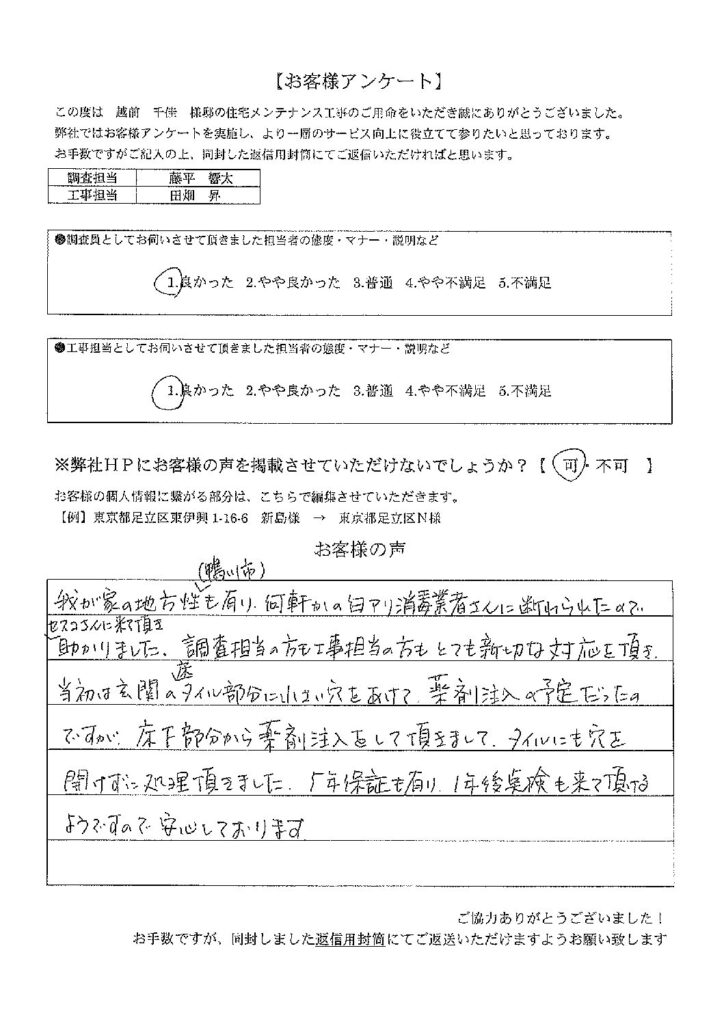 【お客様アンケート】
この度は 越前 千佳 様邸の住宅メンテナンス工事のご用命をいただき誠にありがとうございました。
弊社ではお客様アンケートを実施し、より一層のサービス向上に役立てて参りたいと思っております。
お手数ですがご記入の上、同封した返信用封筒にてご返信いただければと思います。
調査担当 藤平 響太
工事担当 田畑 昇
●調査員としてお伺いさせて頂きました担当者の態度・マナー・説明など
1.良かった 2.やや良かった 3.普通 4.やや不満足 5.不満足
●工事担当としてお伺いさせて頂きました担当者の態度・マナー・説明など
1.良かった 2.やや良かった 3.普通 4.やや不満足 5.不満足
※弊社HPにお客様の声を掲載させていただけないでしょうか？【 可・不可 】
お客様の個人情報に繋がる部分は、こちらで編集させていただきます。
【例】東京都足立区東伊興1-16-6 新島様 → 東京都足立区N様
お客様の声
(鴨川市)
我が家の地方性も有り、何軒かの白アリ消毒業者さんに断わられたので
セスコさんに来て頂き
助かりました。調査担当の方も工事担当の方もとても親切な対応を頂き、
当初は玄関のタイル部分に小さい穴をあけて、薬剤注入の予定だったの
ですが、床下部分から薬剤注入をして頂きまして、タイルにも穴を
開けずに処理頂きました。5年保証も有り、1年後実検も来て頂ける
ようですので安心しております
ご協力ありがとうございました！
お手数ですが、同封しました返信用封筒にてご返送いただけますようお願い致します